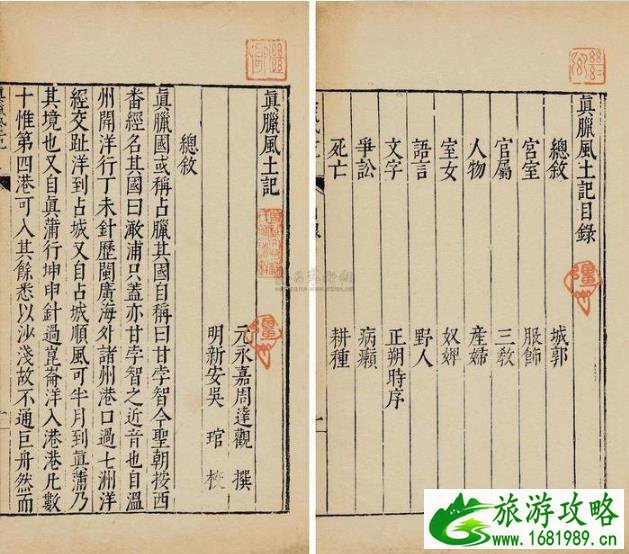 眞臘風土記目錄
總敘 城郭
宮室 服飾
官屬 三教
人物 産婦
室女 奴婢
語言 野人
文字 正朔時序
爭訟 病癩
死亡 耕種
眞臘風土記
元永嘉周達觀 撰
明新安吳琯 校
總敘
眞臘國或稱占臘其國自稱曰甘孛智今聖朝按西
番經名其國曰澉浦只蓋亦甘孛智之近音也自溫
州開洋行丁未針歷閩廣海外諸州港口過七洲洋
經交趾洋到占城又自占城順風可半月到眞蒲乃
其境也又自眞蒲行坤申針過崑崙洋入港港凡數
十惟第四港可入其餘悉以沙淺故不通巨舟然而
旅游攻略
www.1681989.cn